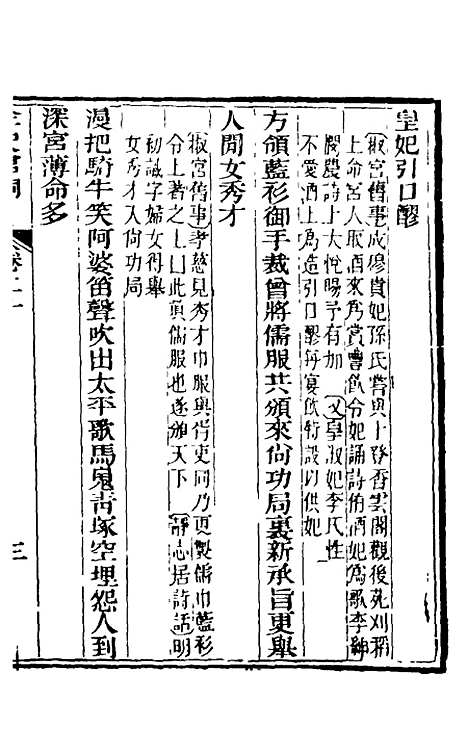 皇妃引口醪
椒宮舊事成穆貴妃孫氏嘗與上登香雲閣觀後苑刈稻
上命宮人取酒來爲賞豐飲令妃誦詩侑酒妃爲歌李紳
憫農詩上大悅賜予有加 又皇淑妃李氏性
不愛酒上爲造引口醪每宴飲特設以供妃
方領藍衫御手裁曾將儒服共頒來尙功局裏新承旨更舉
人閒女秀才
椒宮舊事孝慈見秀才巾服與胥吏同乃更製儒巾藍衫
令上著之上曰此眞儒服也遂頒天下 靜志居詩話明
初識字婦女得舉
女秀才入尙功局
漫把騎牛笑阿婆笛聲吹出太平歌馬嵬靑塚空埋怨人到
深宮薄命多
卷二
三